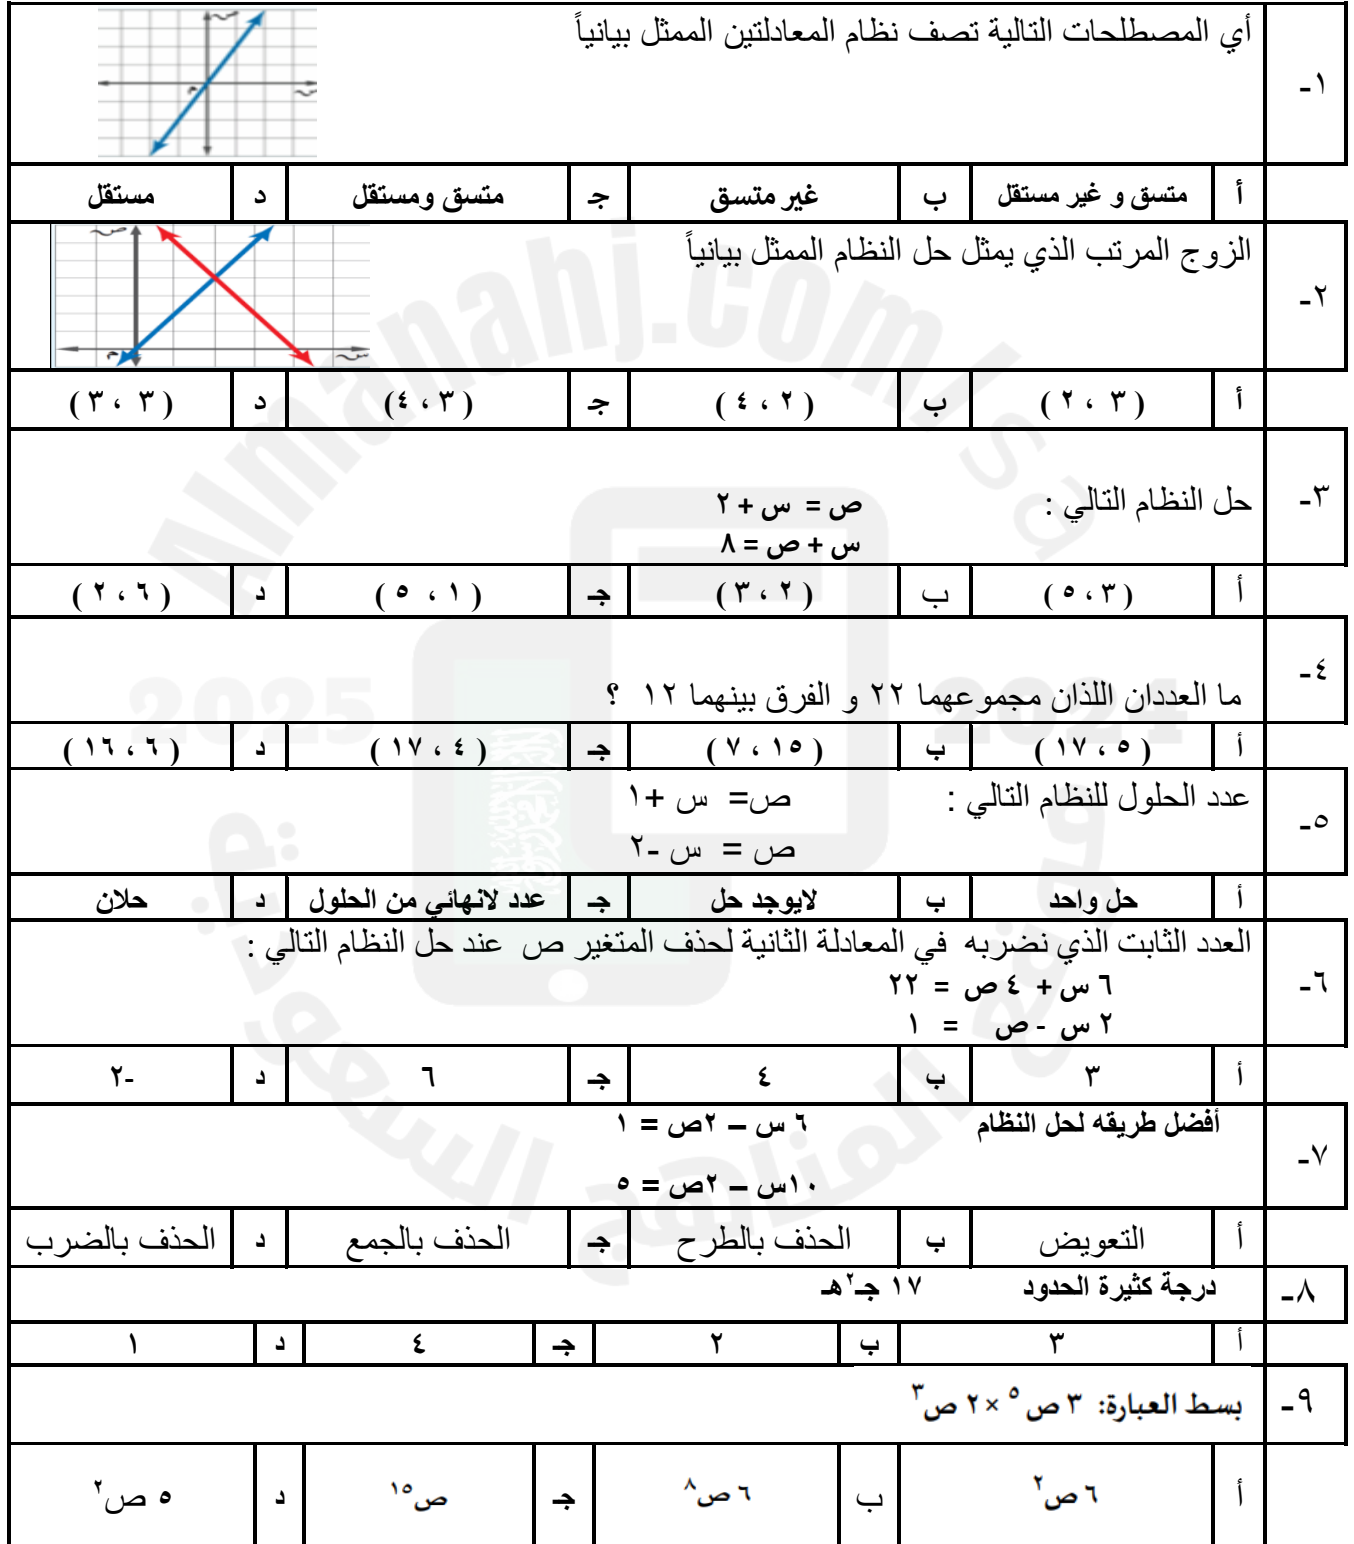 ١- أي المصطلحات التالية تصف نظام المعادلتين الممثل بيانياً
ص
م
س
أ متسق و غير مستقل ب غير متسق جـ متسق ومستقل د مستقل
٢- الزوج المرتب الذي يمثل حل النظام الممثل بيانياً
ص
م
س
أ ( ٣ ، ٢ ) ب ( ٢ ، ٤ ) جـ ( ٣ ، ٤ ) د ( ٣ ، ٣ )
٣- حل النظام التالي : ص = س + ٢
س + ص = ٨
أ ( ٣ ، ٥ ) ب ( ٢ ، ٣ ) جـ ( ١ ، ٥ ) د ( ٦ ، ٢ )
٤- ما العددان اللذان مجموعهما ٢٢ و الفرق بينهما ١٢ ؟
أ ( ٥ ، ١٧ ) ب ( ١٥ ، ٧ ) جـ ( ٤ ، ١٧ ) د ( ٦ ، ١٦ )
٥- عدد الحلول للنظام التالي : ص= س +١
ص = س -٢
أ حل واحد ب لايوجد حل جـ عدد لانهائي من الحلول د حلان
٦- العدد الثابت الذي نضربه في المعادلة الثانية لحذف المتغير ص عند حل النظام التالي :
٦ س + ٤ ص = ٢٢
٢ س - ص = ١
أ ٣ ب ٤ جـ ٦ د -٢
٧- أفضل طريقه لحل النظام ٦ س – ٢ص = ١
١٠س – ٢ص = ٥
أ التعويض ب الحذف بالطرح جـ الحذف بالجمع د الحذف بالضرب
٨- درجة كثيرة الحدود ١٧ جـ٢هـ
أ ٣ ب ٢ جـ ٤ د ١
٩- بسط العبارة: ٣ ص٥ × ٢ ص٣
أ ٦ ص٢ ب ٦ ص٨ جـ ص١٥ د ٥ ص٢
Almanahj.com/sa
2024
2025
موقع المناهج السعودية